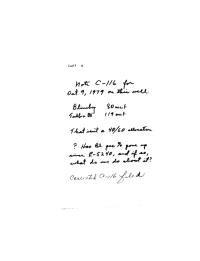 Note C-116 for
Oct 9, 1979 on this well
Blinebry 80 mcf
Tubb 119 mcf
That isn't a 40/60 allocation
? Has Bl gas % gone up
since R-5240, and if so,
what do we do about it?
Corrected C-116 filed